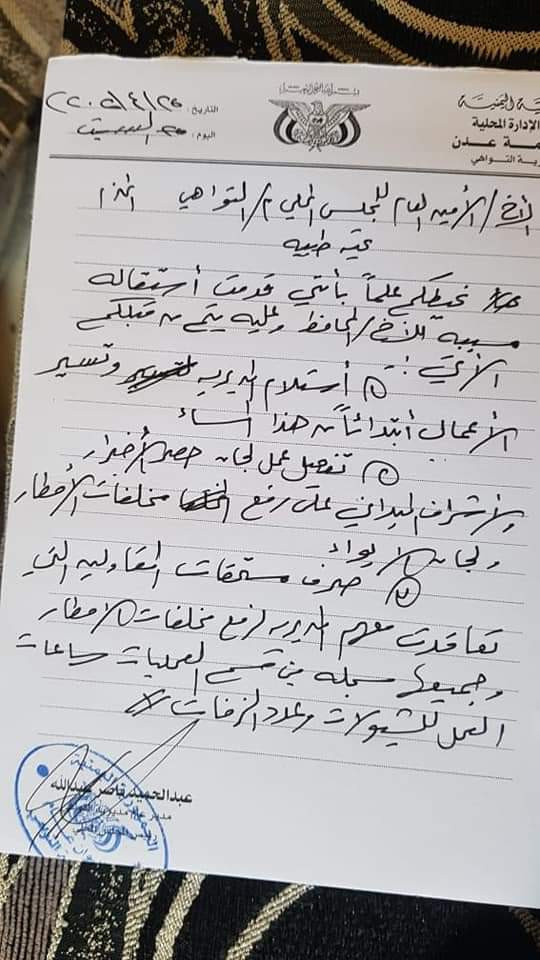 ـة اليمنية
الإدارة المحلية
ـمة عدن
ـرية التواهي
التاريخ: ٢٥/٤/٢٠٢٠م
اليوم: السبت
الأخ/ الأمين العام للمجلس المحلي م/ التواهي المحترم
تحية طيبة
نحيطكم علماً بأنني قدمت أستقاله
مسببه للأخ/ المحافظ وعليه يتم من قبلكم
الآتي :-
١) أستلام المديريه وتسيير
الأعمال أبتدائاً من هذا المساء
٢) تفعيل عمل لجان حصر الأضرار
والأشراف الميداني على رفع مخلفات الأمطار
ولجان الايواء
٣) صرف مستحقات المقاولين التي
تعاقدت معهم المديريه لرفع مخلفات الامطار
وجميعها مسجله من قسم العمليات ساعات
العمل للشيولات وعدد الزفات
عبدالحميد ناصر عبدالله
مدير عام مديرية التواهي
رئيس المجلس المحلي